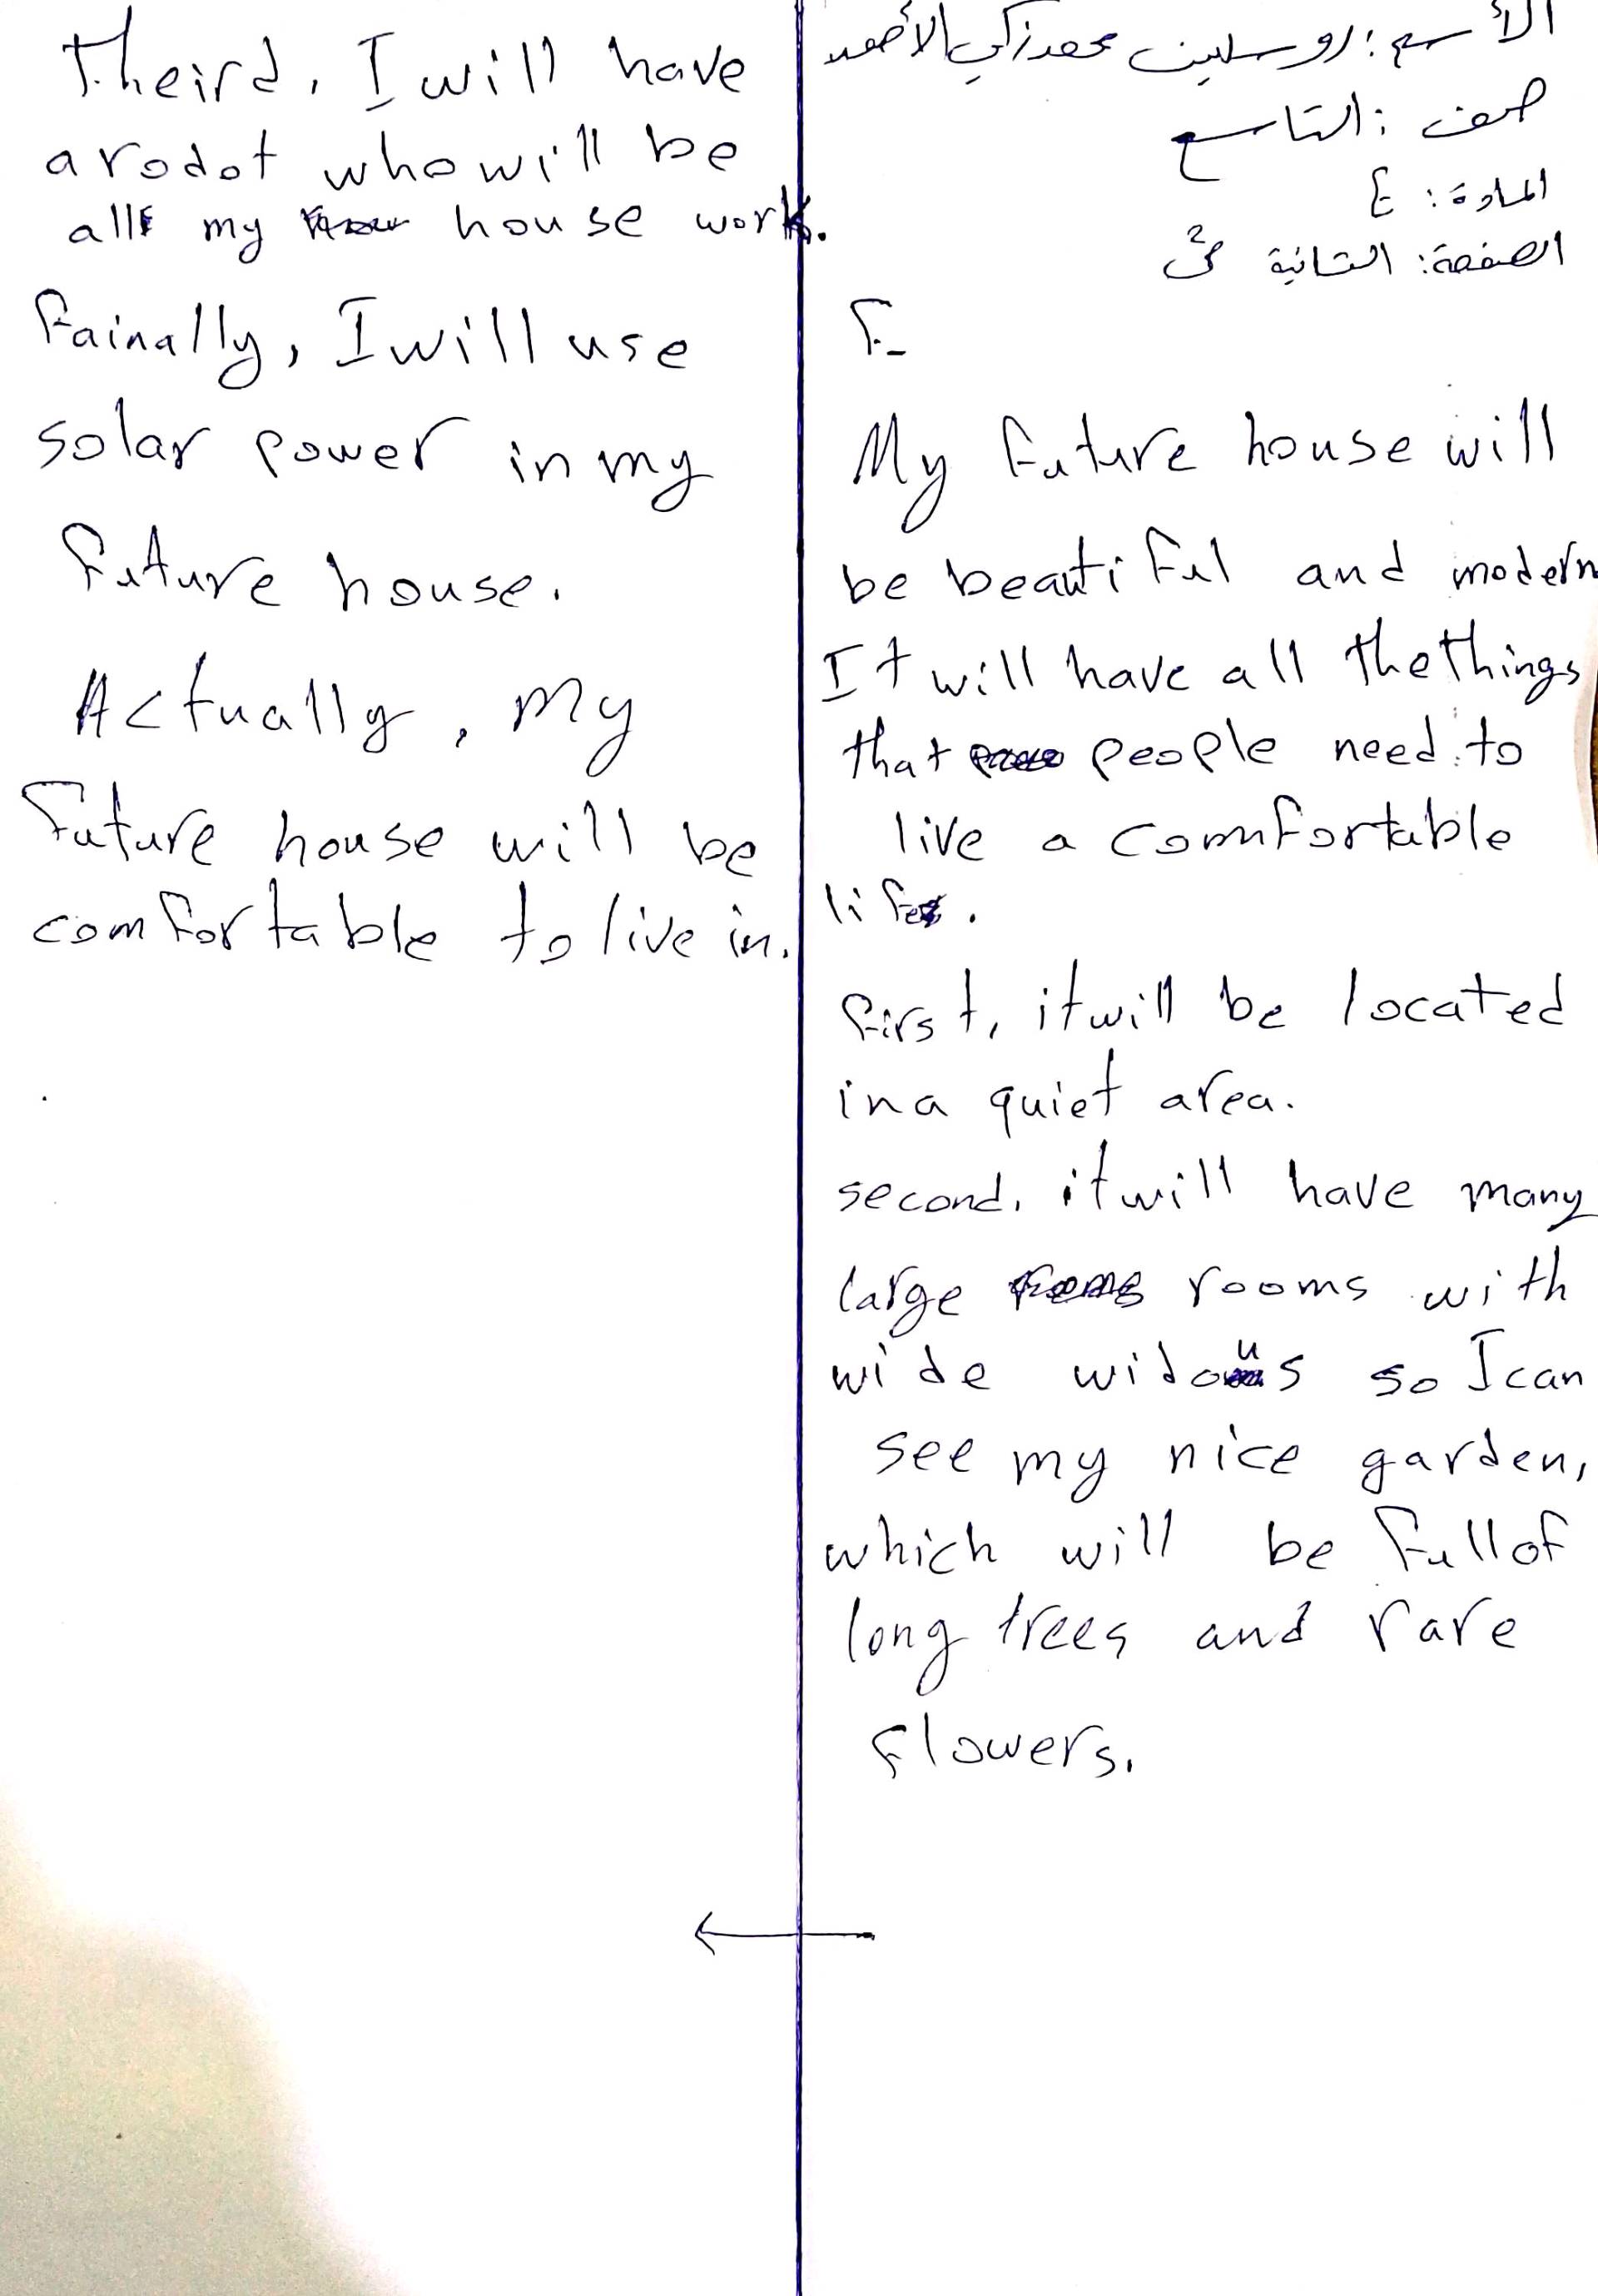 الأسم: روسلين محمد زكي الأحمد
صف: التاسع
المادة: E
الصفحة: الثانية ص2
F_
My future house will
be beautiful and modern
It will have all the things
that people need to
live a comfortable
life.
first, it will be located
in a quiet area.
second, it will have many
large rooms with
wide widous so I can
see my nice garden,
which will be full of
long trees and rare
flowers.
theird, I will have
a rodot who will be
all my house work.
fainally, I will use
solar power in my
future house.
Actually, my
future house will be
comfortable to live in.